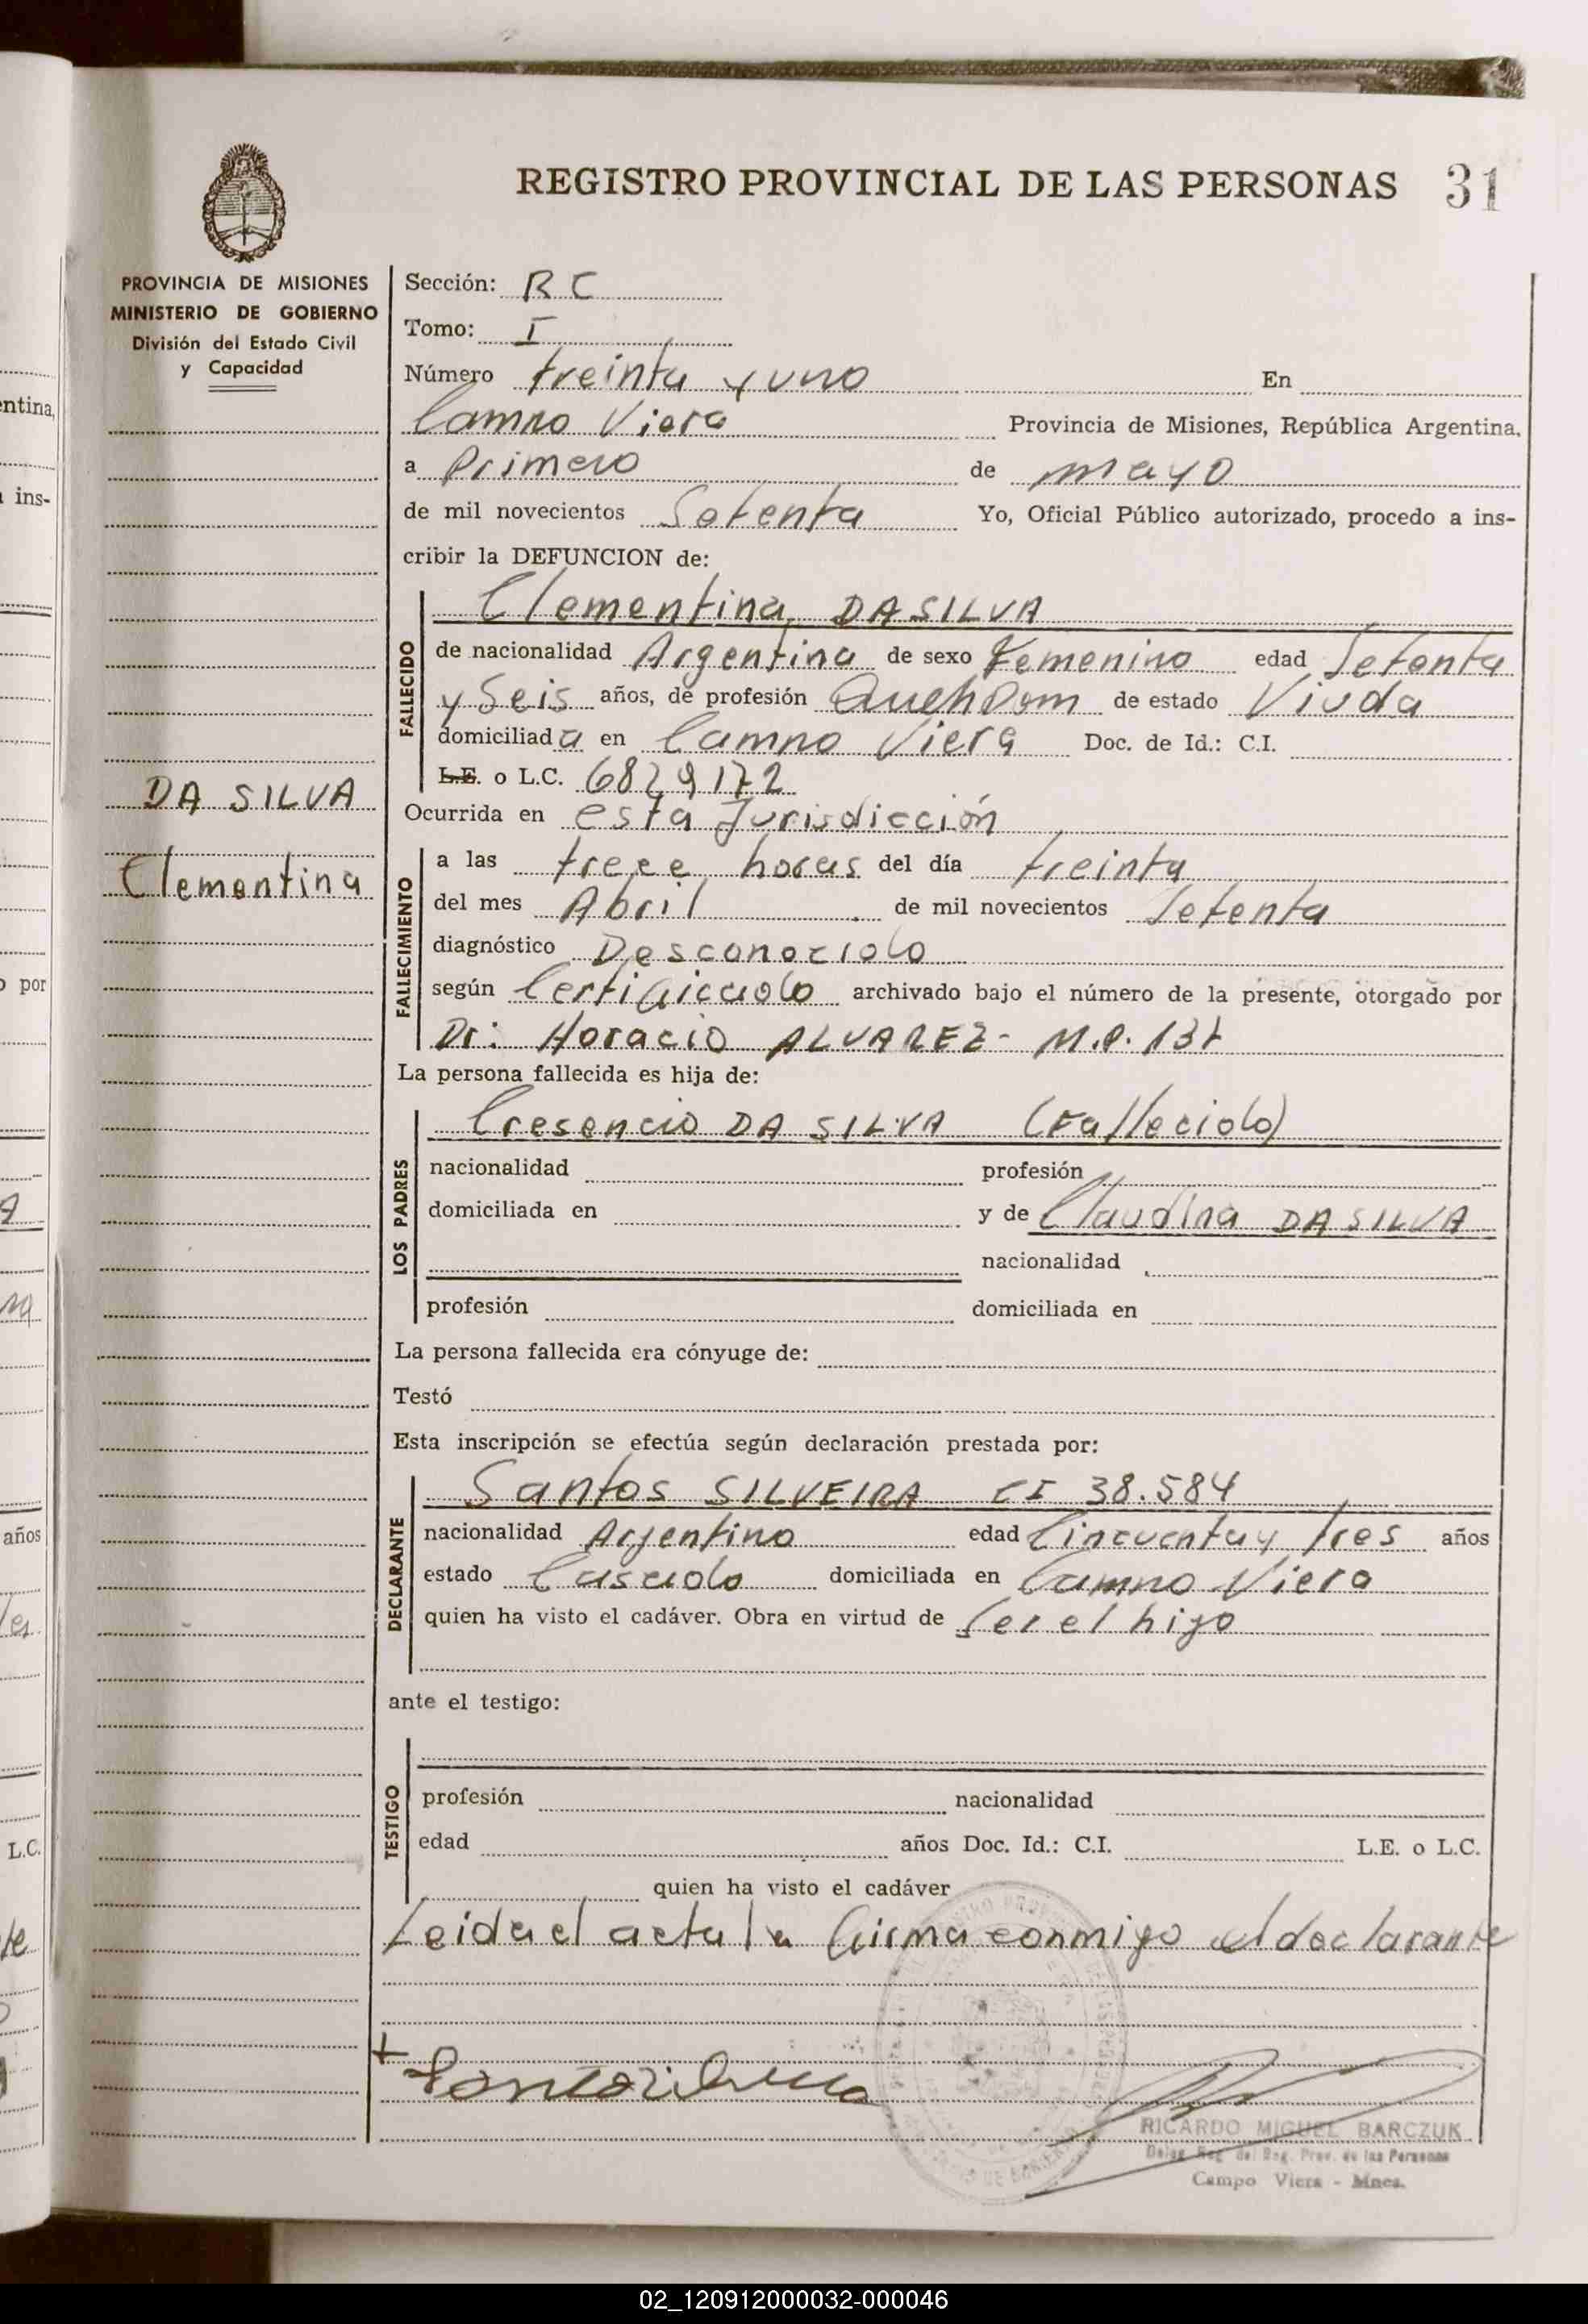 REGISTRO PROVINCIAL DE LAS PERSONAS 31
PROVINCIA DE MISIONES
MINISTERIO DE GOBIERNO
División del Estado Civil
y Capacidad
DA SILVA
Clementina
Sección: RC
Tomo: I
Número treinta y uno En
Campo Viera Provincia de Misiones, República Argentina.
a Primero de mayo
de mil novecientos Setenta Yo, Oficial Público autorizado, procedo a ins-
cribir la DEFUNCION de:
FALLECIDO
Clementina DA SILVA
de nacionalidad Argentina de sexo Femenino edad Setenta
y Seis años, de profesión de estado Viuda
domiciliada en Campo Viera Doc. de Id.: C.I.
L.E. o L.C. 6829172
Ocurrida en esta Jurisdicción
FALLECIMIENTO
a las trece horas del día treinta
del mes Abril de mil novecientos Setenta
diagnóstico Desconocido
según Certificado archivado bajo el número de la presente, otorgado por
Dr: Horacio ALVAREZ - M.P.
La persona fallecida es hija de:
LOS PADRES
Cresencio DA SILVA (Fallecido)
nacionalidad profesión
domiciliada en y de Claudina DA SILVA
nacionalidad
profesión domiciliada en
La persona fallecida era cónyuge de:
Testó
Esta inscripción se efectúa según declaración prestada por:
DECLARANTE
Santos SILVEIRA CI 38.584
nacionalidad Argentino edad Cincuenta y Tres años
estado Casado domiciliada en Campo Viera
quien ha visto el cadáver. Obra en virtud de Ser el hijo
ante el testigo:
TESTIGO
profesión nacionalidad
edad años Doc. Id.: C.I. L.E. o L.C.
quien ha visto el cadáver
Leida el acta la firma conmigo el declarante
RICARDO MIGUEL BARCZUK
Deleg. Reg. del Reg. Prov. de las Personas
Campo Viera - Mnes.
ntina,
ins-
por
años
L.C.
02_120912000032-000046